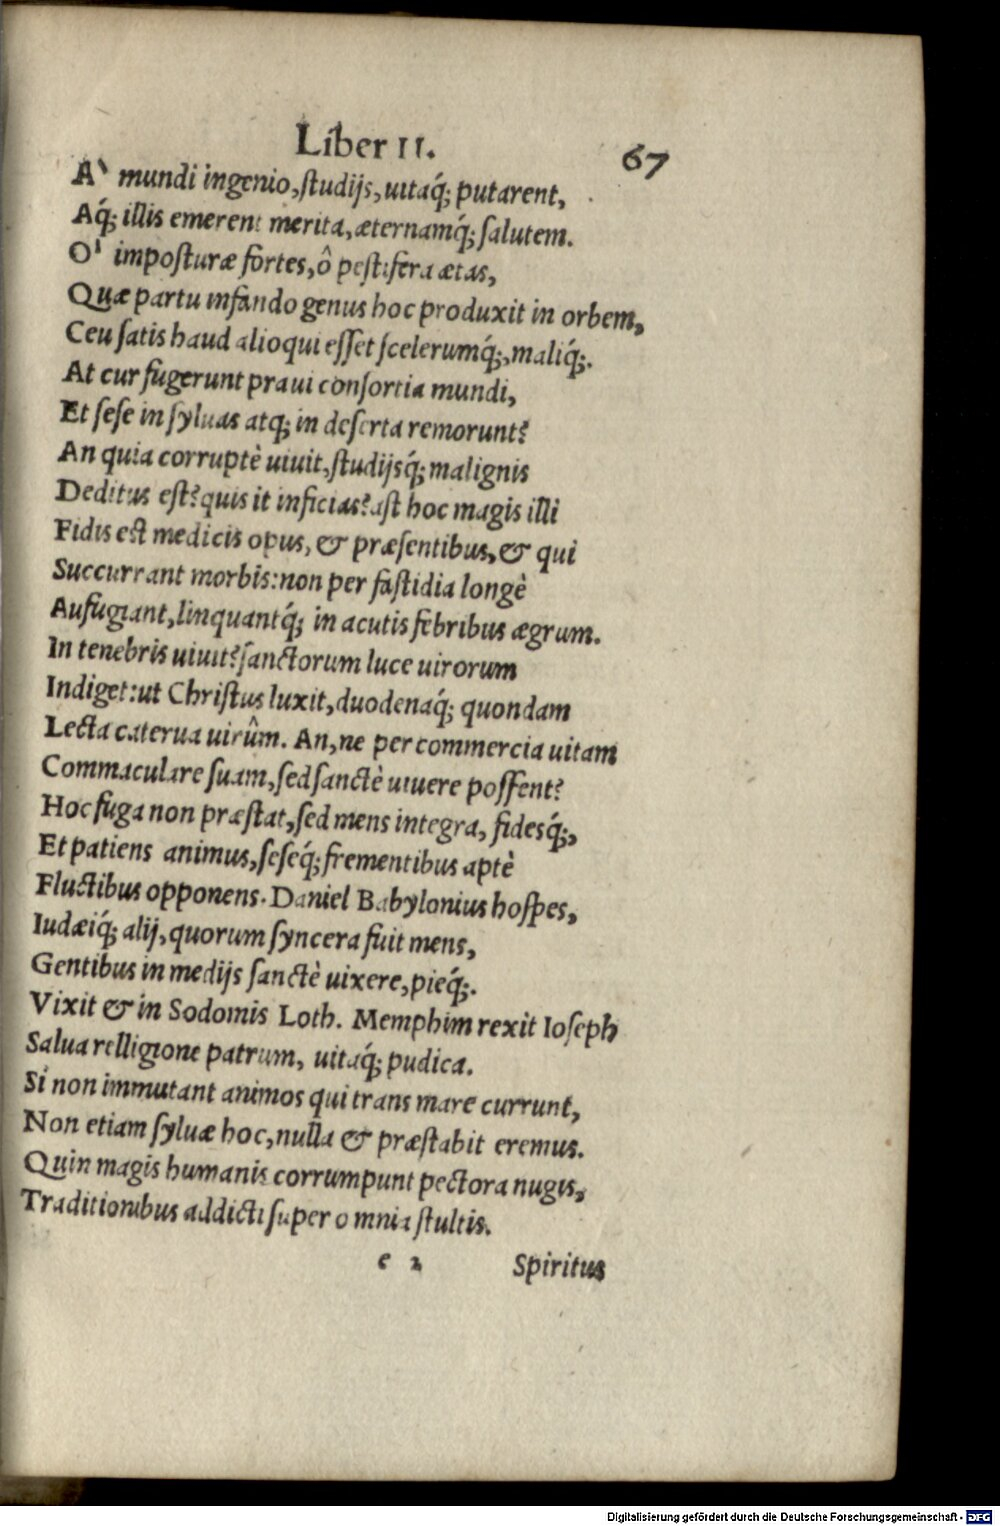 Liber II. 67
A' mundi ingenio, ſtudijs, uitaq́; putarent,
Aq́; illis emerent merita, æternamq́; ſalutem.
O' impoſturæ fortes, ô peſtifera ætas,
Quæ partu infando genus hoc produxit in orbem,
Ceu ſatis haud alioqui eſſet ſcelerumq́;, maliq́;.
At cur fugerunt praui conſortia mundi,
Et ſeſe in ſyluas atq; in deſerta remorunt?
An quia corruptè uiuit, ſtudijsq́; malignis
Deditus eſt? quis it inficias? aſt hoc magis illi
Fidis eſt medicis opus, & præſentibus, & qui
Succurrant morbis: non per faſtidia longè
Aufugiant, linquantq́; in acutis febribus ægrum.
In tenebris uiuit? ſanctorum luce uirorum
Indiget: ut Chriſtus luxit, duodenaq́; quondam
Lecta caterua uirûm. An, ne per commercia uitam
Commaculare ſuam, ſed ſanctè uiuere poſſent?
Hoc fuga non præſtat, ſed mens integra, fidesq́;,
Et patiens animus, ſeſeq́; frementibus aptè
Fluctibus opponens. Daniel Babylonius hoſpes,
Iudæiq́; alij, quorum ſyncera fuit mens,
Gentibus in medijs ſanctè uixere, pieq́;.
Vixit & in Sodomis Loth. Memphim rexit Ioſeph
Salua relligione patrum, uitaq́; pudica.
Si non immutant animos qui trans mare currunt,
Non etiam ſyluæ hoc, nulla & præſtabit eremus.
Quin magis humanis corrumpunt pectora nugis,
Traditionibus addicti ſuper omnia ſtultis.
e 2 Spiritus
Digitalisierung gefördert durch die Deutsche Forschungsgemeinschaft - DFG